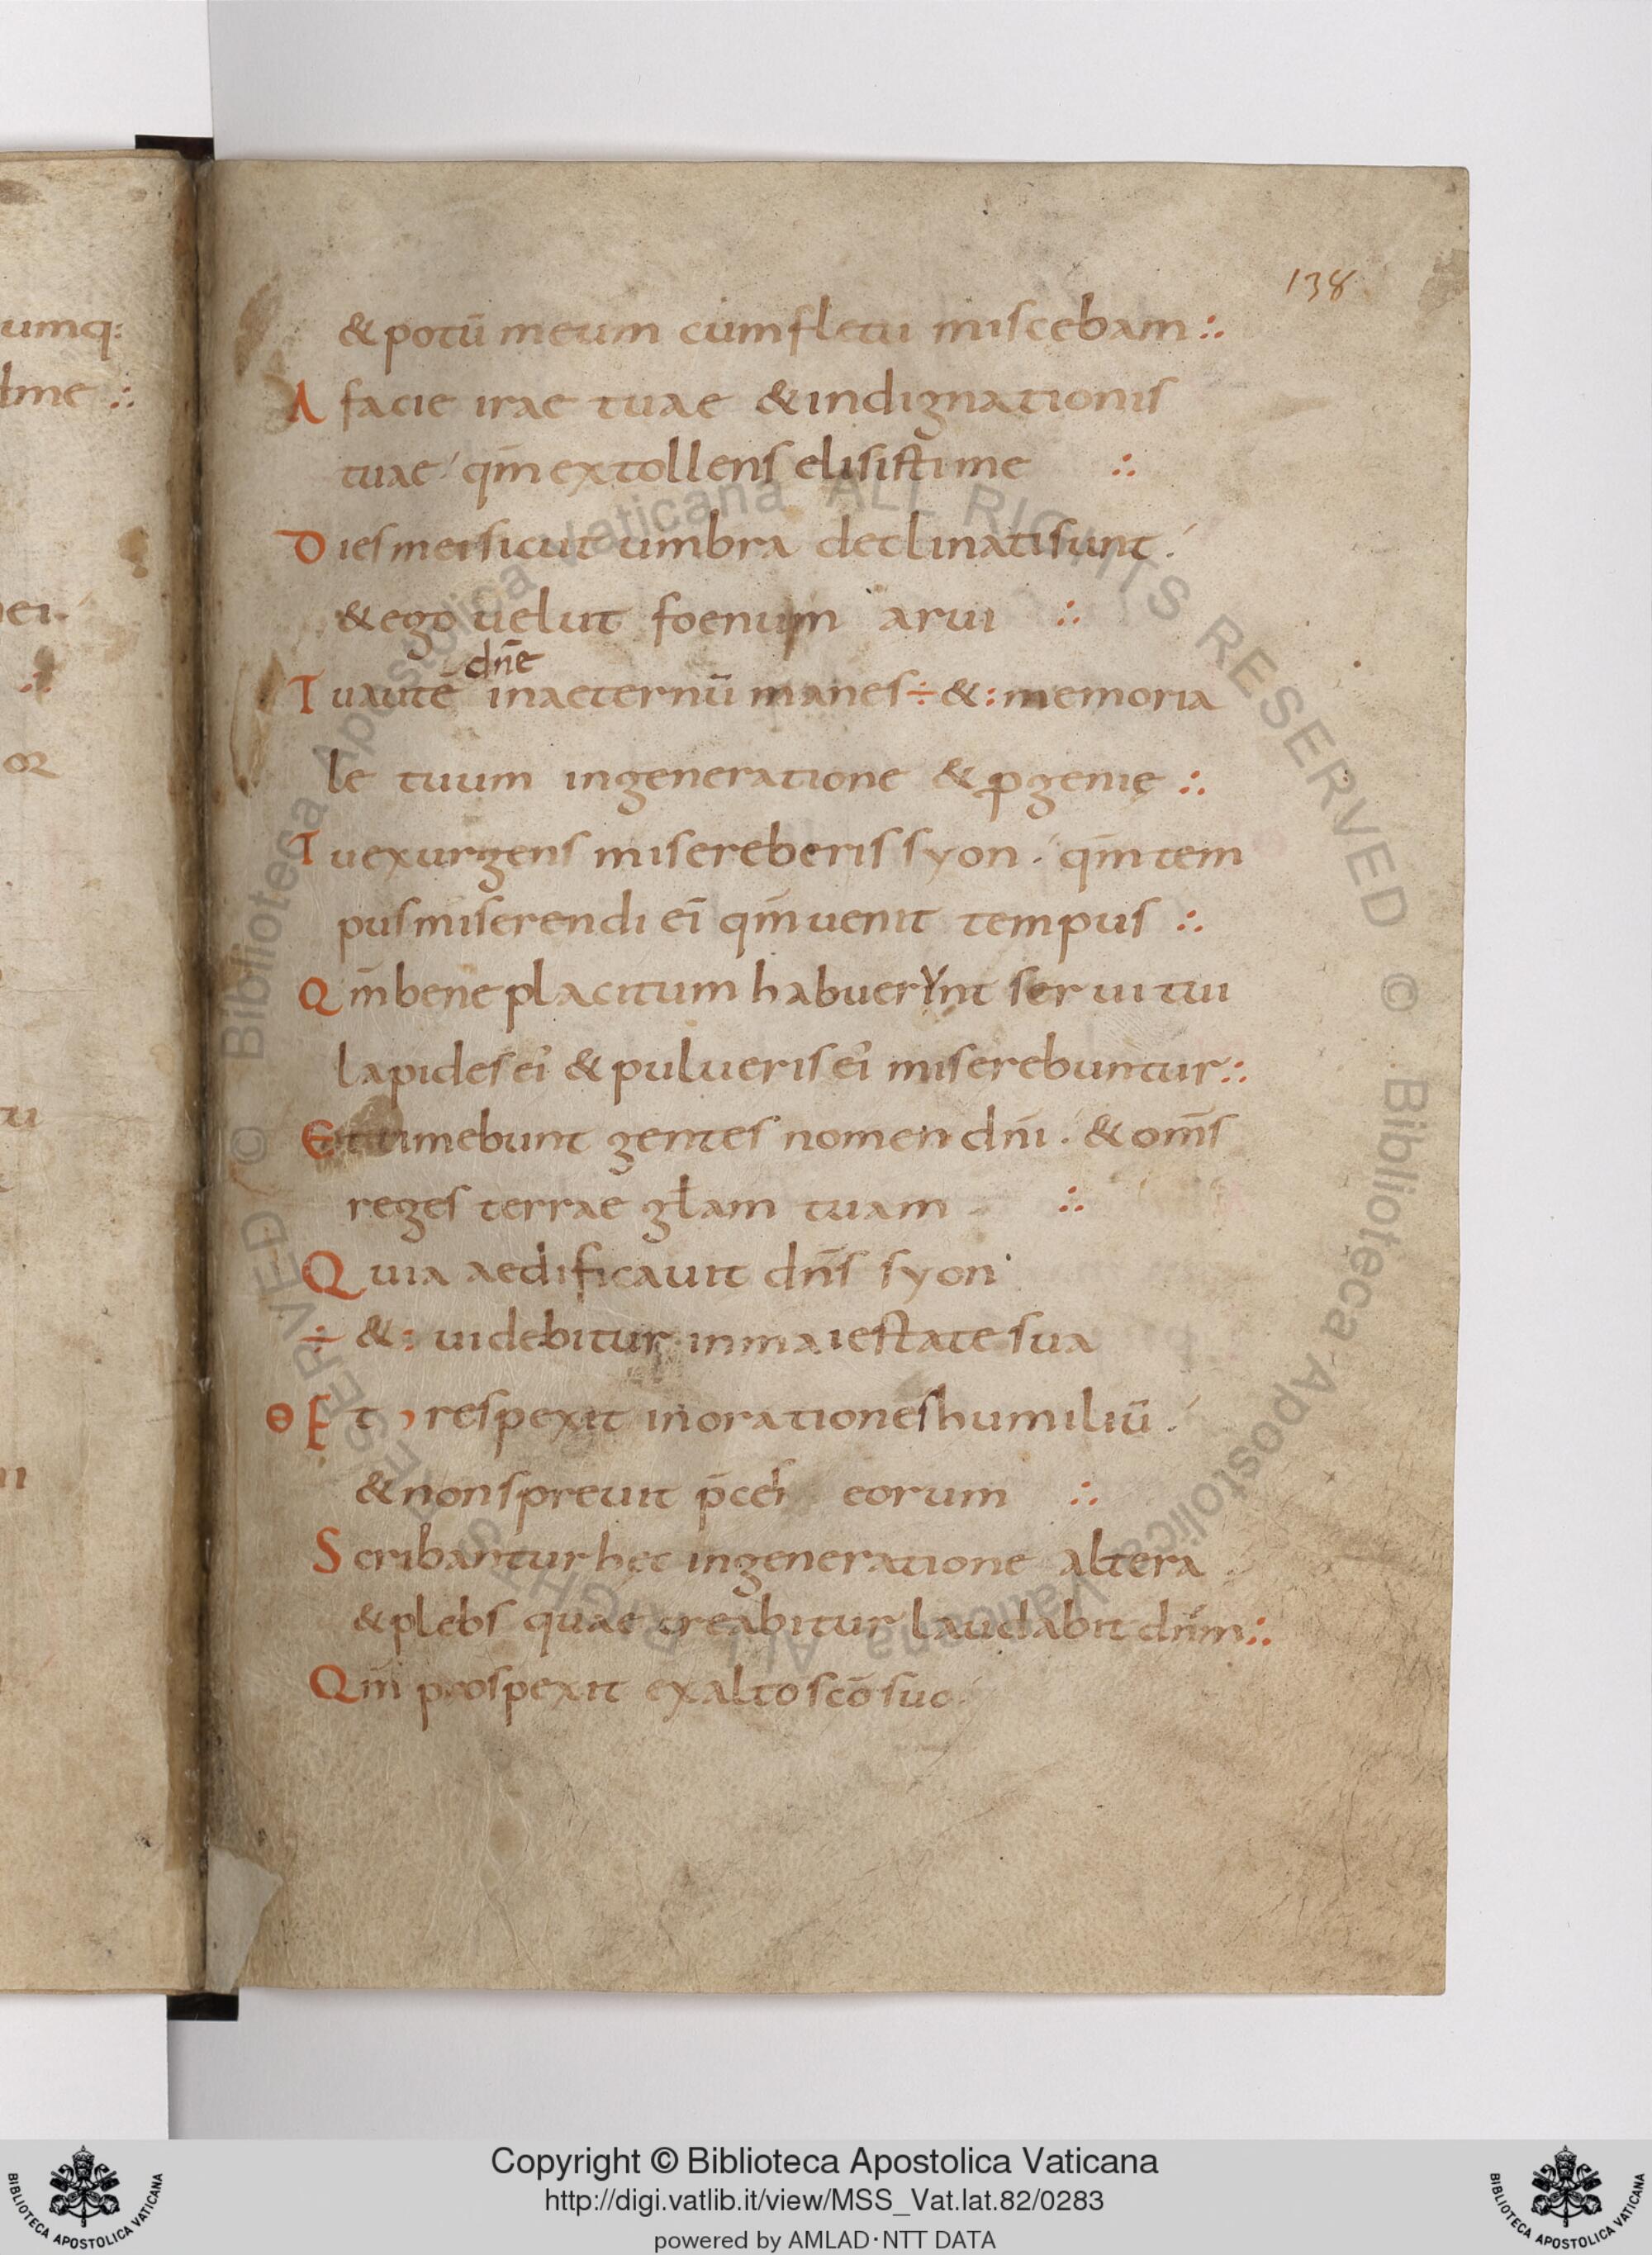 umq:
dme ∴
ei.
∴
oꝝ
tu
138
& potū meum cum fletu miscebam ∴
A facie irae tuae & indignationis
tuae · qm̄ extollens elisisti me ∴
Dies mei sicut umbra declinati sunt ·
& ego uelut foenum arui ∴
dn̄e
Tu autē in aeternū manes ÷ & : memoria
le tuum in generatione & ꝓgenię ∴
Tu exurgens misereberis syon · qm̄ tem
pus miserendi ei̅ qm̄ uenit tempus ∴
Qm̄ bene placitum habuerỲnt serui tui
lapides ei' & pulueris ei' miserebuntur ∴
Et timebunt gentes nomen dn̄i · & om̄s
reges terrae głam tuam ∴
Quia aedificauit dn̄s syon
÷ & : uidebitur in maiestate sua
θ Et , respexit in orationes humiliū ·
& non spreuit p̄ces eorum ∴
Scribantur hęc in generatione altera
& plebs quae creabitur laudabit dn̄m ∴
Qm̄ prospexit ex alto scō suo ·
Copyright © Biblioteca Apostolica Vaticana
http://digi.vatlib.it/view/MSS_Vat.lat.82/0283
powered by AMLAD·NTT DATA
BIBLIOTECA APOSTOLICA VATICANA
BIBLIOTECA APOSTOLICA VATICANA
© Biblioteca Apostolica Vaticana ALL RIGHTS RESERVED © Biblioteca Apostolica Vaticana ALL RIGHTS RESERVED